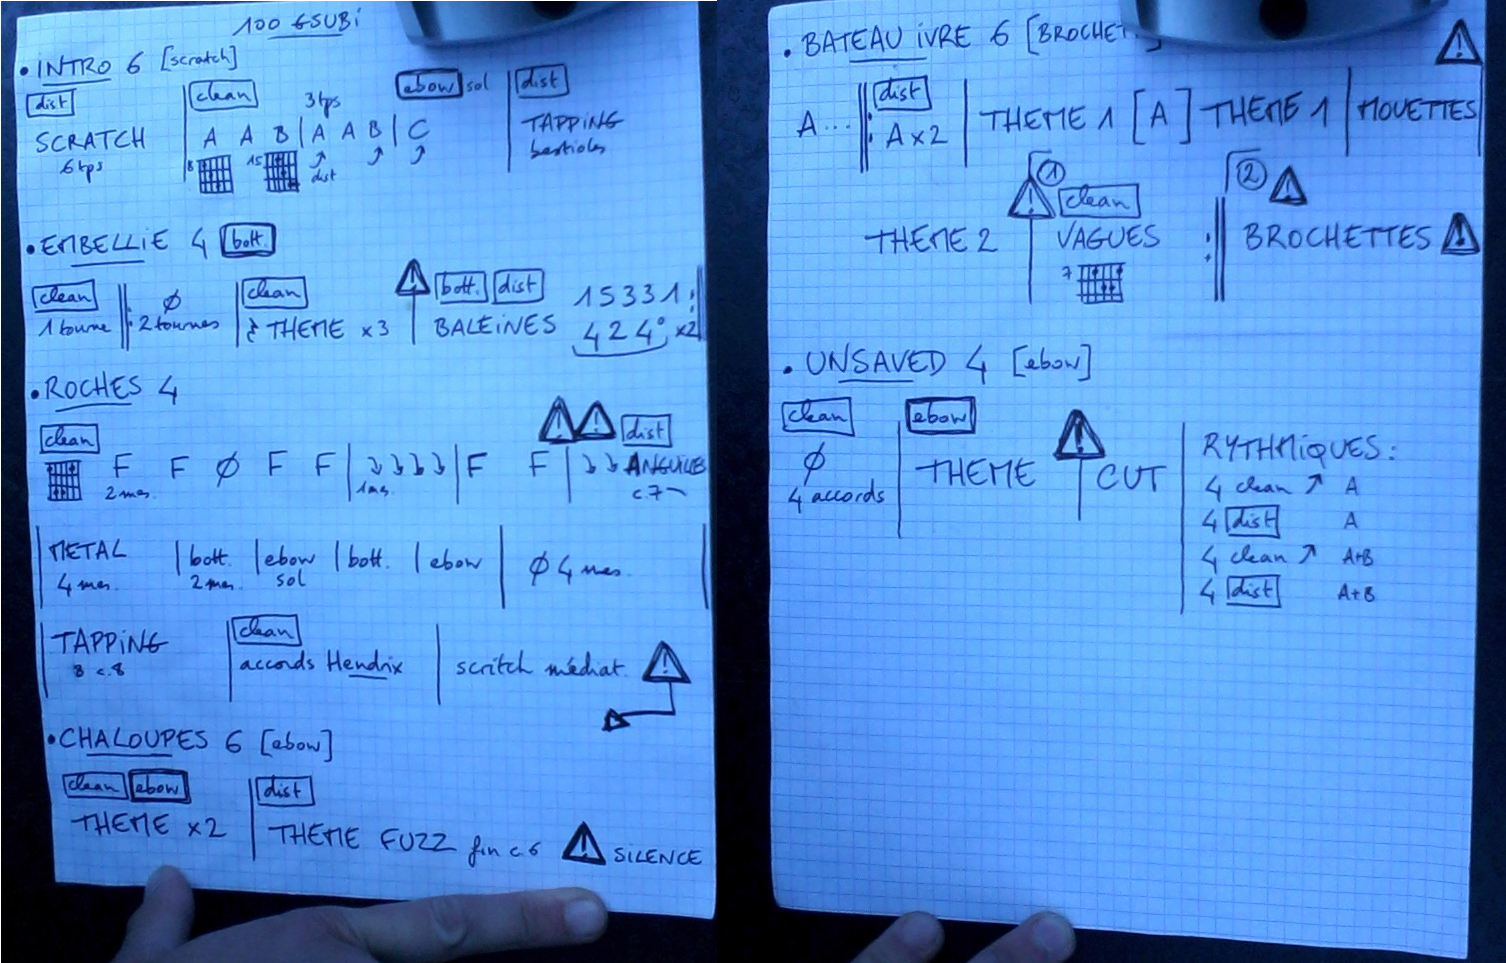 100 GSUBI
• INTRO 6 [scratch]
dist clean 3 tps ebow sol dist
SCRATCH A A B | A A B | C TAPPING
6 tps 8 15 dist bestioles
• EMBELLIE 4 bott.
clean Ø clean bott. dist 15331
1 tourne 2 tournes THEME x3 BALEINES 424° x2
• ROCHES 4
clean dist
F F Ø F F | | F F | ANGUILLES
2 mes. 1 mes. c.7
METAL | bott. | ebow | bott. | ebow | Ø 4 mes.
4 mes. 2 mes. sol
TAPPING clean
8 c.8 accords Hendrix scritch médiat.
• CHALOUPES 6 [ebow]
clean ebow dist
THEME x2 THEME FUZZ fin c.6 SILENCE
• BATEAU IVRE 6 [BROCHET
dist
A... A x2 THEME 1 [A] THEME 1 | MOUETTES
1 2
clean
THEME 2 VAGUES BROCHETTES
7
• UNSAVED 4 [ebow]
clean ebow
Ø THEME CUT
4 accords
RYTHMIQUES :
4 clean ↗ A
4 dist A
4 clean ↗ A+B
4 dist A+B